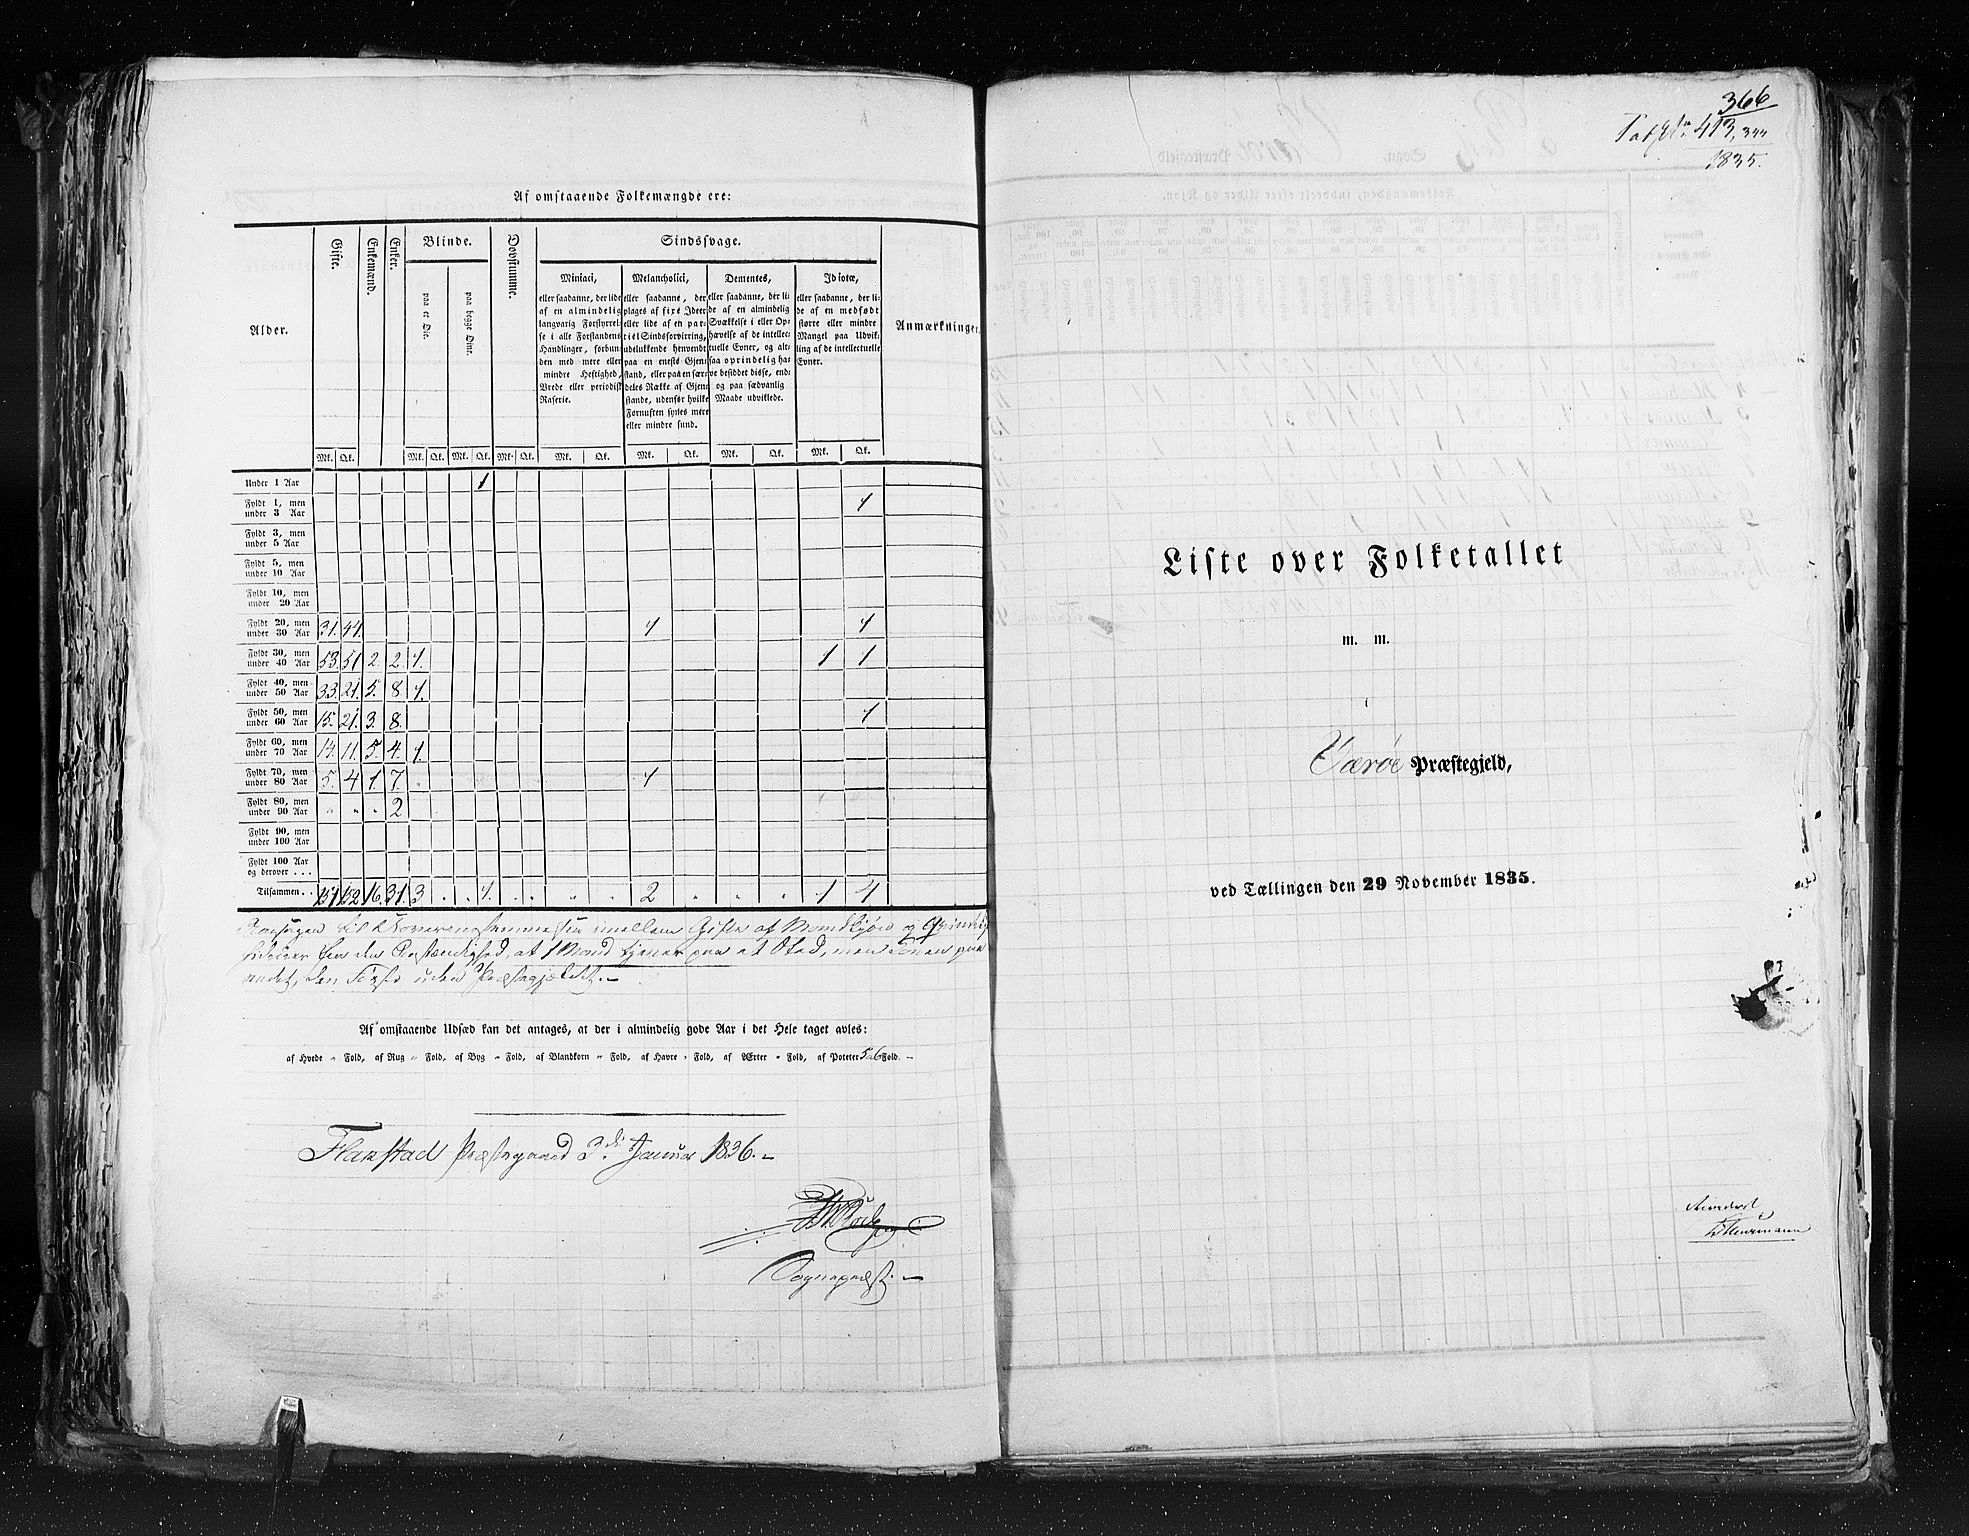 Af omstaaende Folkemængde ere:
Alder.
Gifte.
Enkemænd.
Enker.
Blinde.
paa et Øie.
paa begge Øine.
Døvstumme.
Sindssvage.
Miniaci,
eller saadanne, der lide
af en almindelig
langvarig Forstyrrel-
se i alle Forstandens
Handlinger, forbun-
den med mere eller
mindre Heftighed,
Vrede eller periodisk
Raserie.
Melancholici,
eller saadanne, der
plages af fixe Ideer
eller lide af en par-
tiel Sindsforvirring,
udelukkende henvendt
paa en enest Gjen-
stand, eller paa en sær-
deles Række af Gjen-
stande, udenfor hvilke
Fornuften synes mere
eller mindre sund.
Dementes,
eller saadanne, der li-
de af en almindelig
Svækkelse i eller Op-
hævelse af de intellec-
tuelle Evner, og alt-
saa oprindelig ha-
ve besiddet disse, end-
og paa sædvanlig
Maade udviklede.
Idiotæ,
eller saadanne, der li-
de af en medfødt
større eller mindre
Mangel paa Udvik-
ling af de intellectuelle
Evner.
Anmærkninger.
Mk. Qk. Mk. Qk. Mk. Qk. Mk. Qk. Mk. Qk. Mk. Qk. Mk. Qk. Mk. Qk.
Under 1 Aar 1
Fyldt 1, men
under 3 Aar 1
Fyldt 3, men
under 5 Aar
Fyldt 5, men
under 10 Aar
Fyldt 10, men
under 20 Aar
Fyldt 20, men
under 30 Aar 31. 44. 1 1
Fyldt 30, men
under 40 Aar 53. 51 2. 2. 1. 1 1
Fyldt 40, men
under 50 Aar 33. 21. 5. 8. 1.
Fyldt 50, men
under 60 Aar 15. 21. 3. 8. 1
Fyldt 60, men
under 70 Aar 14. 11. 5. 4. 1.
Fyldt 70, men
under 80 Aar 5. 4 1. 7. 1
Fyldt 80, men
under 90 Aar " " " 2
Fyldt 90, men
under 100 Aar
Fyldt 100 Aar
og derover . . .
Tilsammen . . 151 152 16. 31. 3 . . 1. . . " " 2 " " " 1 4
Aarsagen til Uoverensstemmelsen mellem Gifte af Mandkjøn og Qvindekjøn
hidrører fra den Omstændighed, at 1 Mand tjener paa et Sted, men Konen paa
andet, den Første uden Præstegjældet. –
Af omstaaende Udsæd kan det antages, at der i almindelig gode Aar i det Hele taget avles:
af Hvede " Fold, af Rug " Fold, af Byg " Fold, af Blandkorn " Fold, af Havre " Fold, af Ærter " Fold, af Poteter 5 a 6 Fold. –
Flakstad Præstegaard 3de Januar 1836. –
Sognepræst. –
366
413, 344
1835.
Liste over Folketallet
m. m.
Værøe Præstegjeld,
ved Tællingen den 29 November 1835.